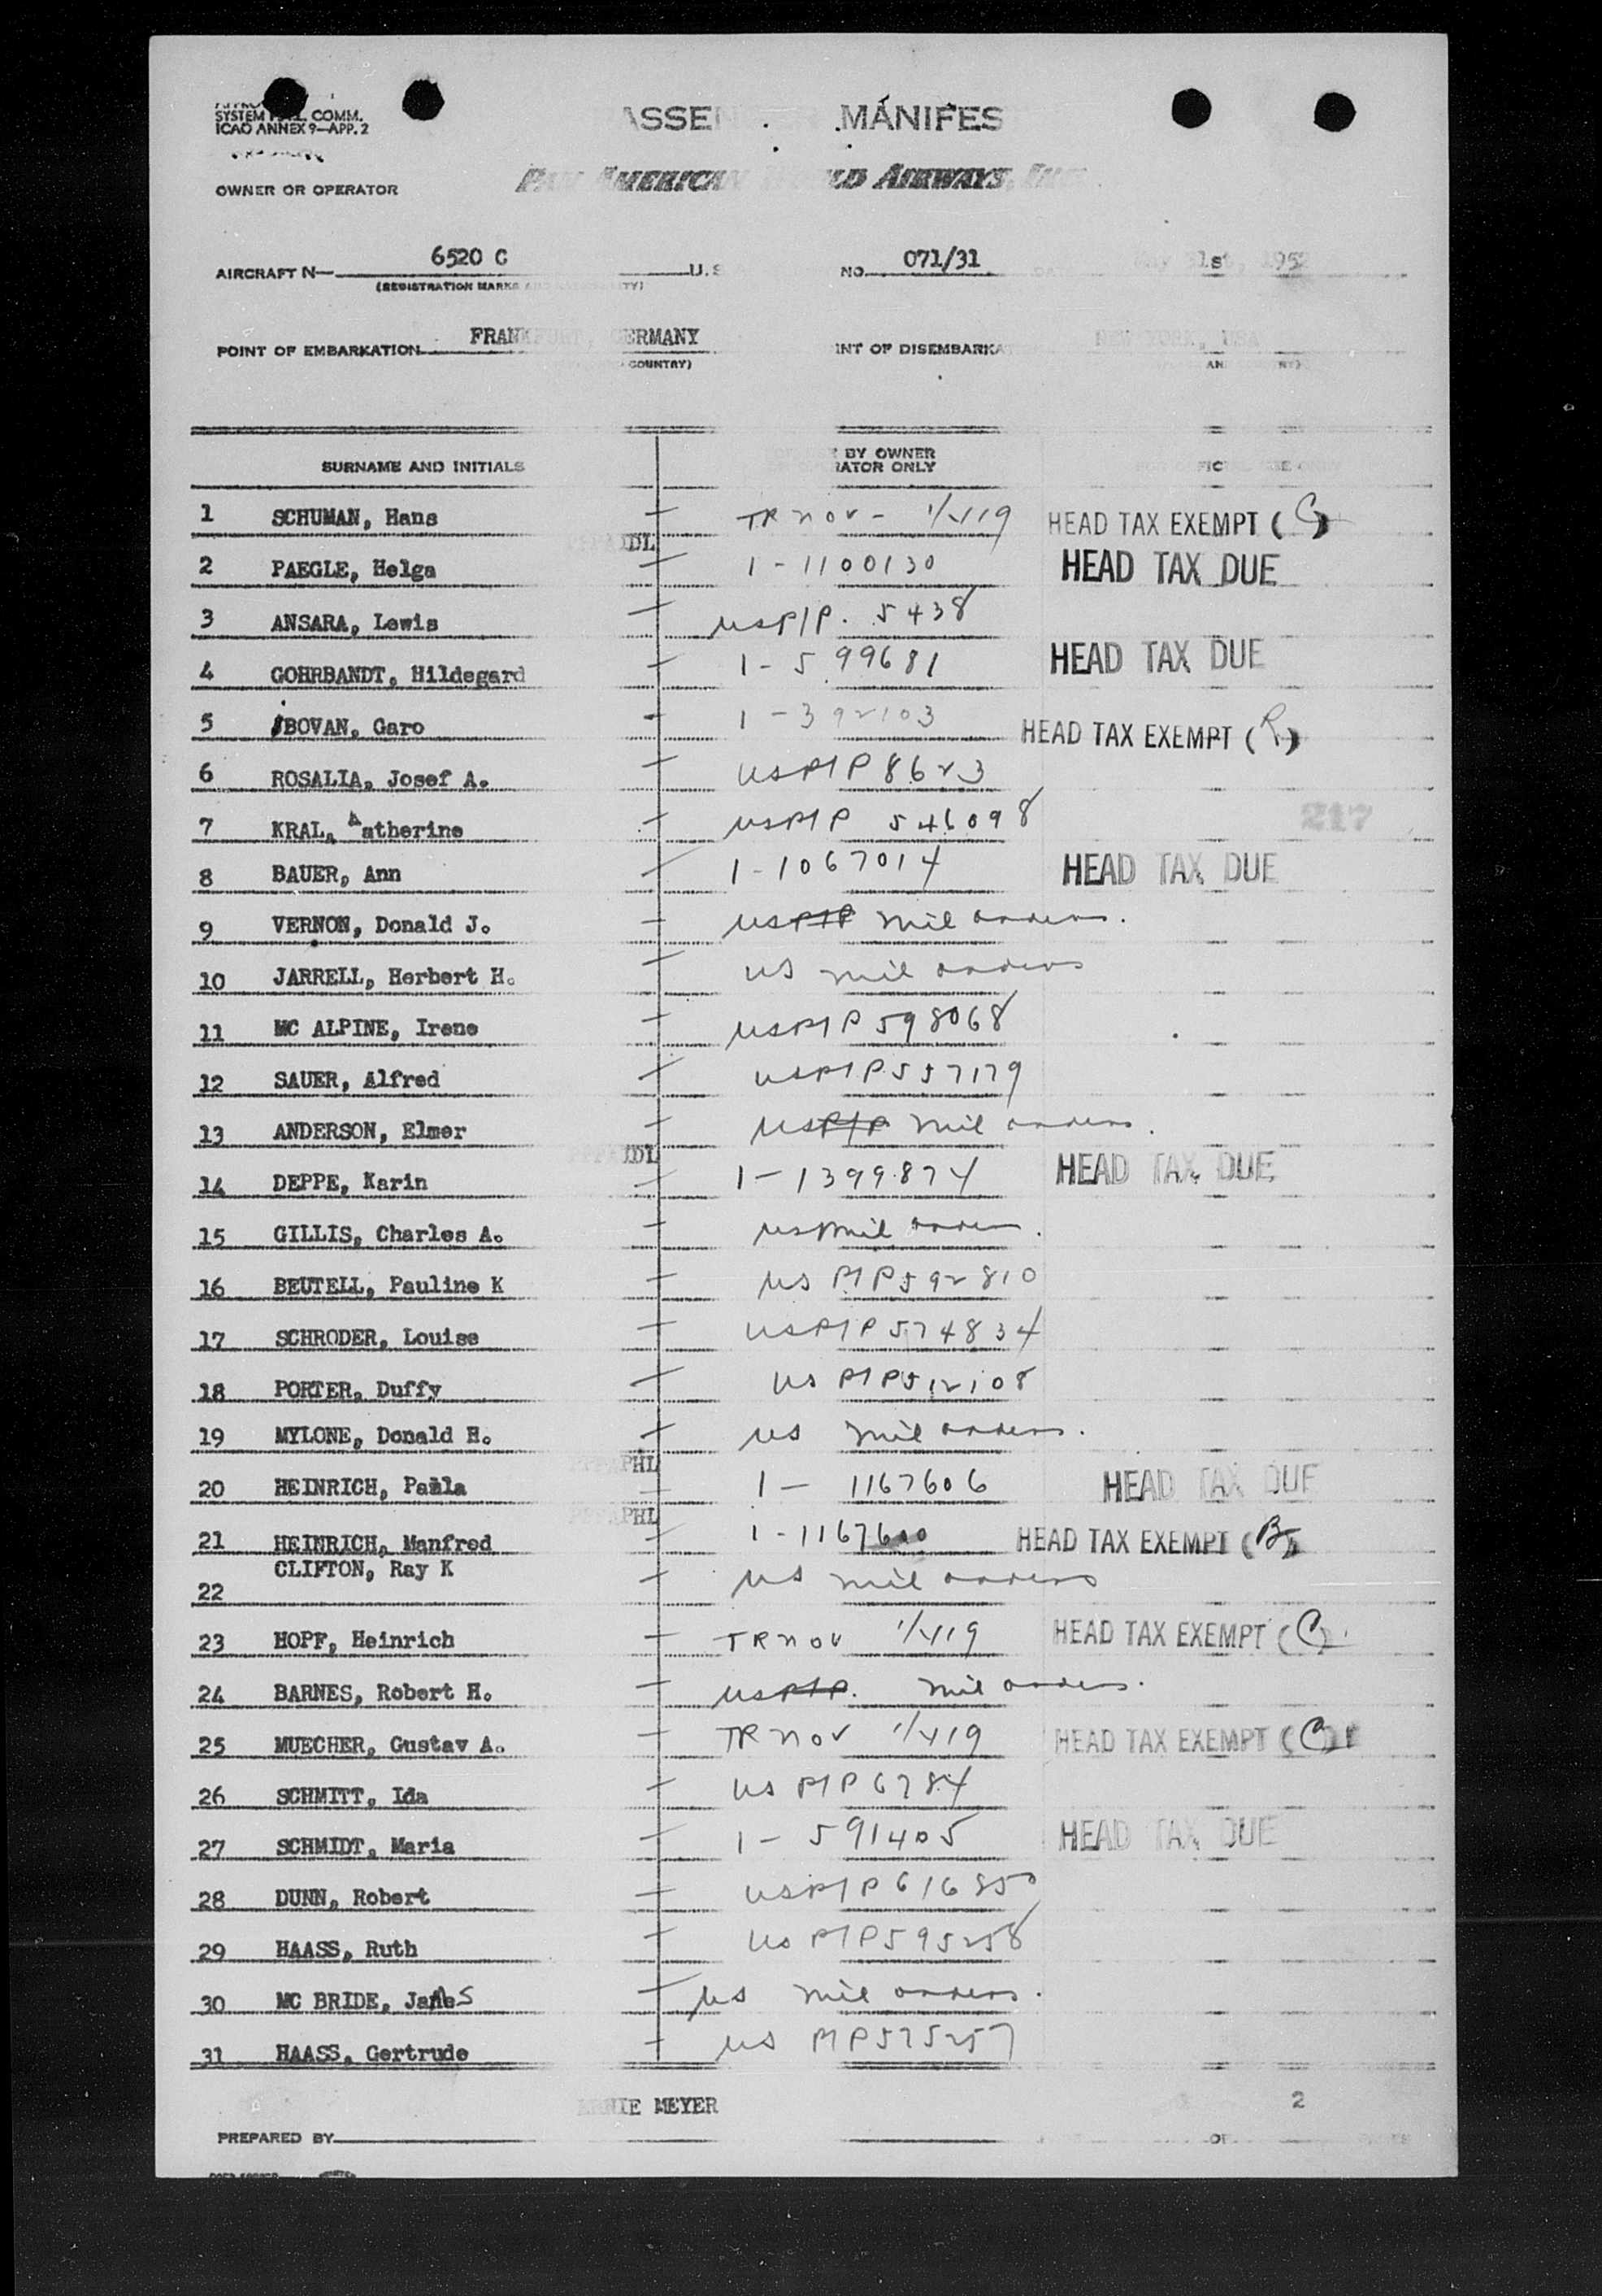 SYSTEM COMM.
ICAO ANNEX 9—APP. 2
MANIFES
OWNER OR OPERATOR PAN AMERICAN WORLD AIRWAYS, INC.
AIRCRAFT N— 6520 C U.S NO. 071/31 DATE May 31st, 195
(REGISTRATION MARKS AND NATIONALITY)
POINT OF EMBARKATION FRANKFURT, GERMANY POINT OF DISEMBARKA NEW YORK, USA
COUNTRY)
SURNAME AND INITIALS FOR USE BY OWNER OR OPERATOR ONLY FOR OFFICIAL USE ONLY
1 SCHUMAN, Hans — TR nov - HEAD TAX EXEMPT (C)
IDL
2 PAEGLE, Helga — 1-1100130 HEAD TAX DUE
3 ANSARA, Lewis — USP/P. 5438
4 GOHRBANDT, Hildegard — 1-599681 HEAD TAX DUE
5 BOVAN, Garo — 1-392103 HEAD TAX EXEMPT (R)
6 ROSALIA, Josef A. — USP/P 8623
7 KRAL, atherine — USP/P 546098
217
8 BAUER, Ann — 1-1067014 HEAD TAX DUE
9 VERNON, Donald J. — US P/P mil orders.
10 JARRELL, Herbert H. — US mil orders
11 MC ALPINE, Irene — USP/P 598068
12 SAUER, Alfred — USP/P 557179
13 ANDERSON, Elmer — US P/P mil orders.
IDL
14 DEPPE, Karin — 1-1399874 HEAD TAX DUE
15 GILLIS, Charles A. — US mil orders.
16 BEUTELL, Pauline K — US P/P 592810
17 SCHRODER, Louise — USP/P 574834
18 PORTER, Duffy — US P/P 512108
19 MYLONE, Donald H. — US mil orders.
PHL
20 HEINRICH, Paula — 1-1167606 HEAD TAX DUE
PHL
21 HEINRICH, Manfred — 1-1167600 HEAD TAX EXEMPT (B)
22 CLIFTON, Ray K — US mil orders
23 HOPF, Heinrich — TR nov HEAD TAX EXEMPT (C)
24 BARNES, Robert H. — US P/P. mil orders.
25 MUECHER, Gustav A. — TR nov HEAD TAX EXEMPT (C)
26 SCHMITT, Ida — US P/P 6784
27 SCHMIDT, Maria — 1-591405 HEAD TAX DUE
28 DUNN, Robert — USP/P 616850
29 HAASS, Ruth — US P/P 595258
30 MC BRIDE, James — US mil orders.
31 HAASS, Gertrude — US P/P 575257
ARNIE MEYER 2
PREPARED BY OF